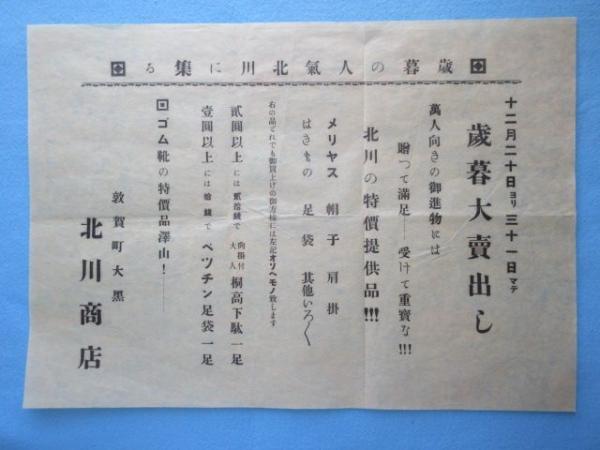 歲暮の人氣北川に集る
十二月二十日ヨリ三十一日マデ
歲暮大賣出し
萬人向きの御進物には
贈つて滿足――受けて重寶な!!!
北川の特價提供品!!!
メリヤス 帽子 肩掛
はきもの 足袋 其他いろ〱
右の品どれでも御買上げの御方樣には左記オソヘモノ致します
貳圓以上には貳拾錢で 大人向掛付 桐高下駄一足
壹圓以上には拾錢で ベツチン足袋一足
ゴム靴の特價品澤山!――
敦賀町大黑
北川商店